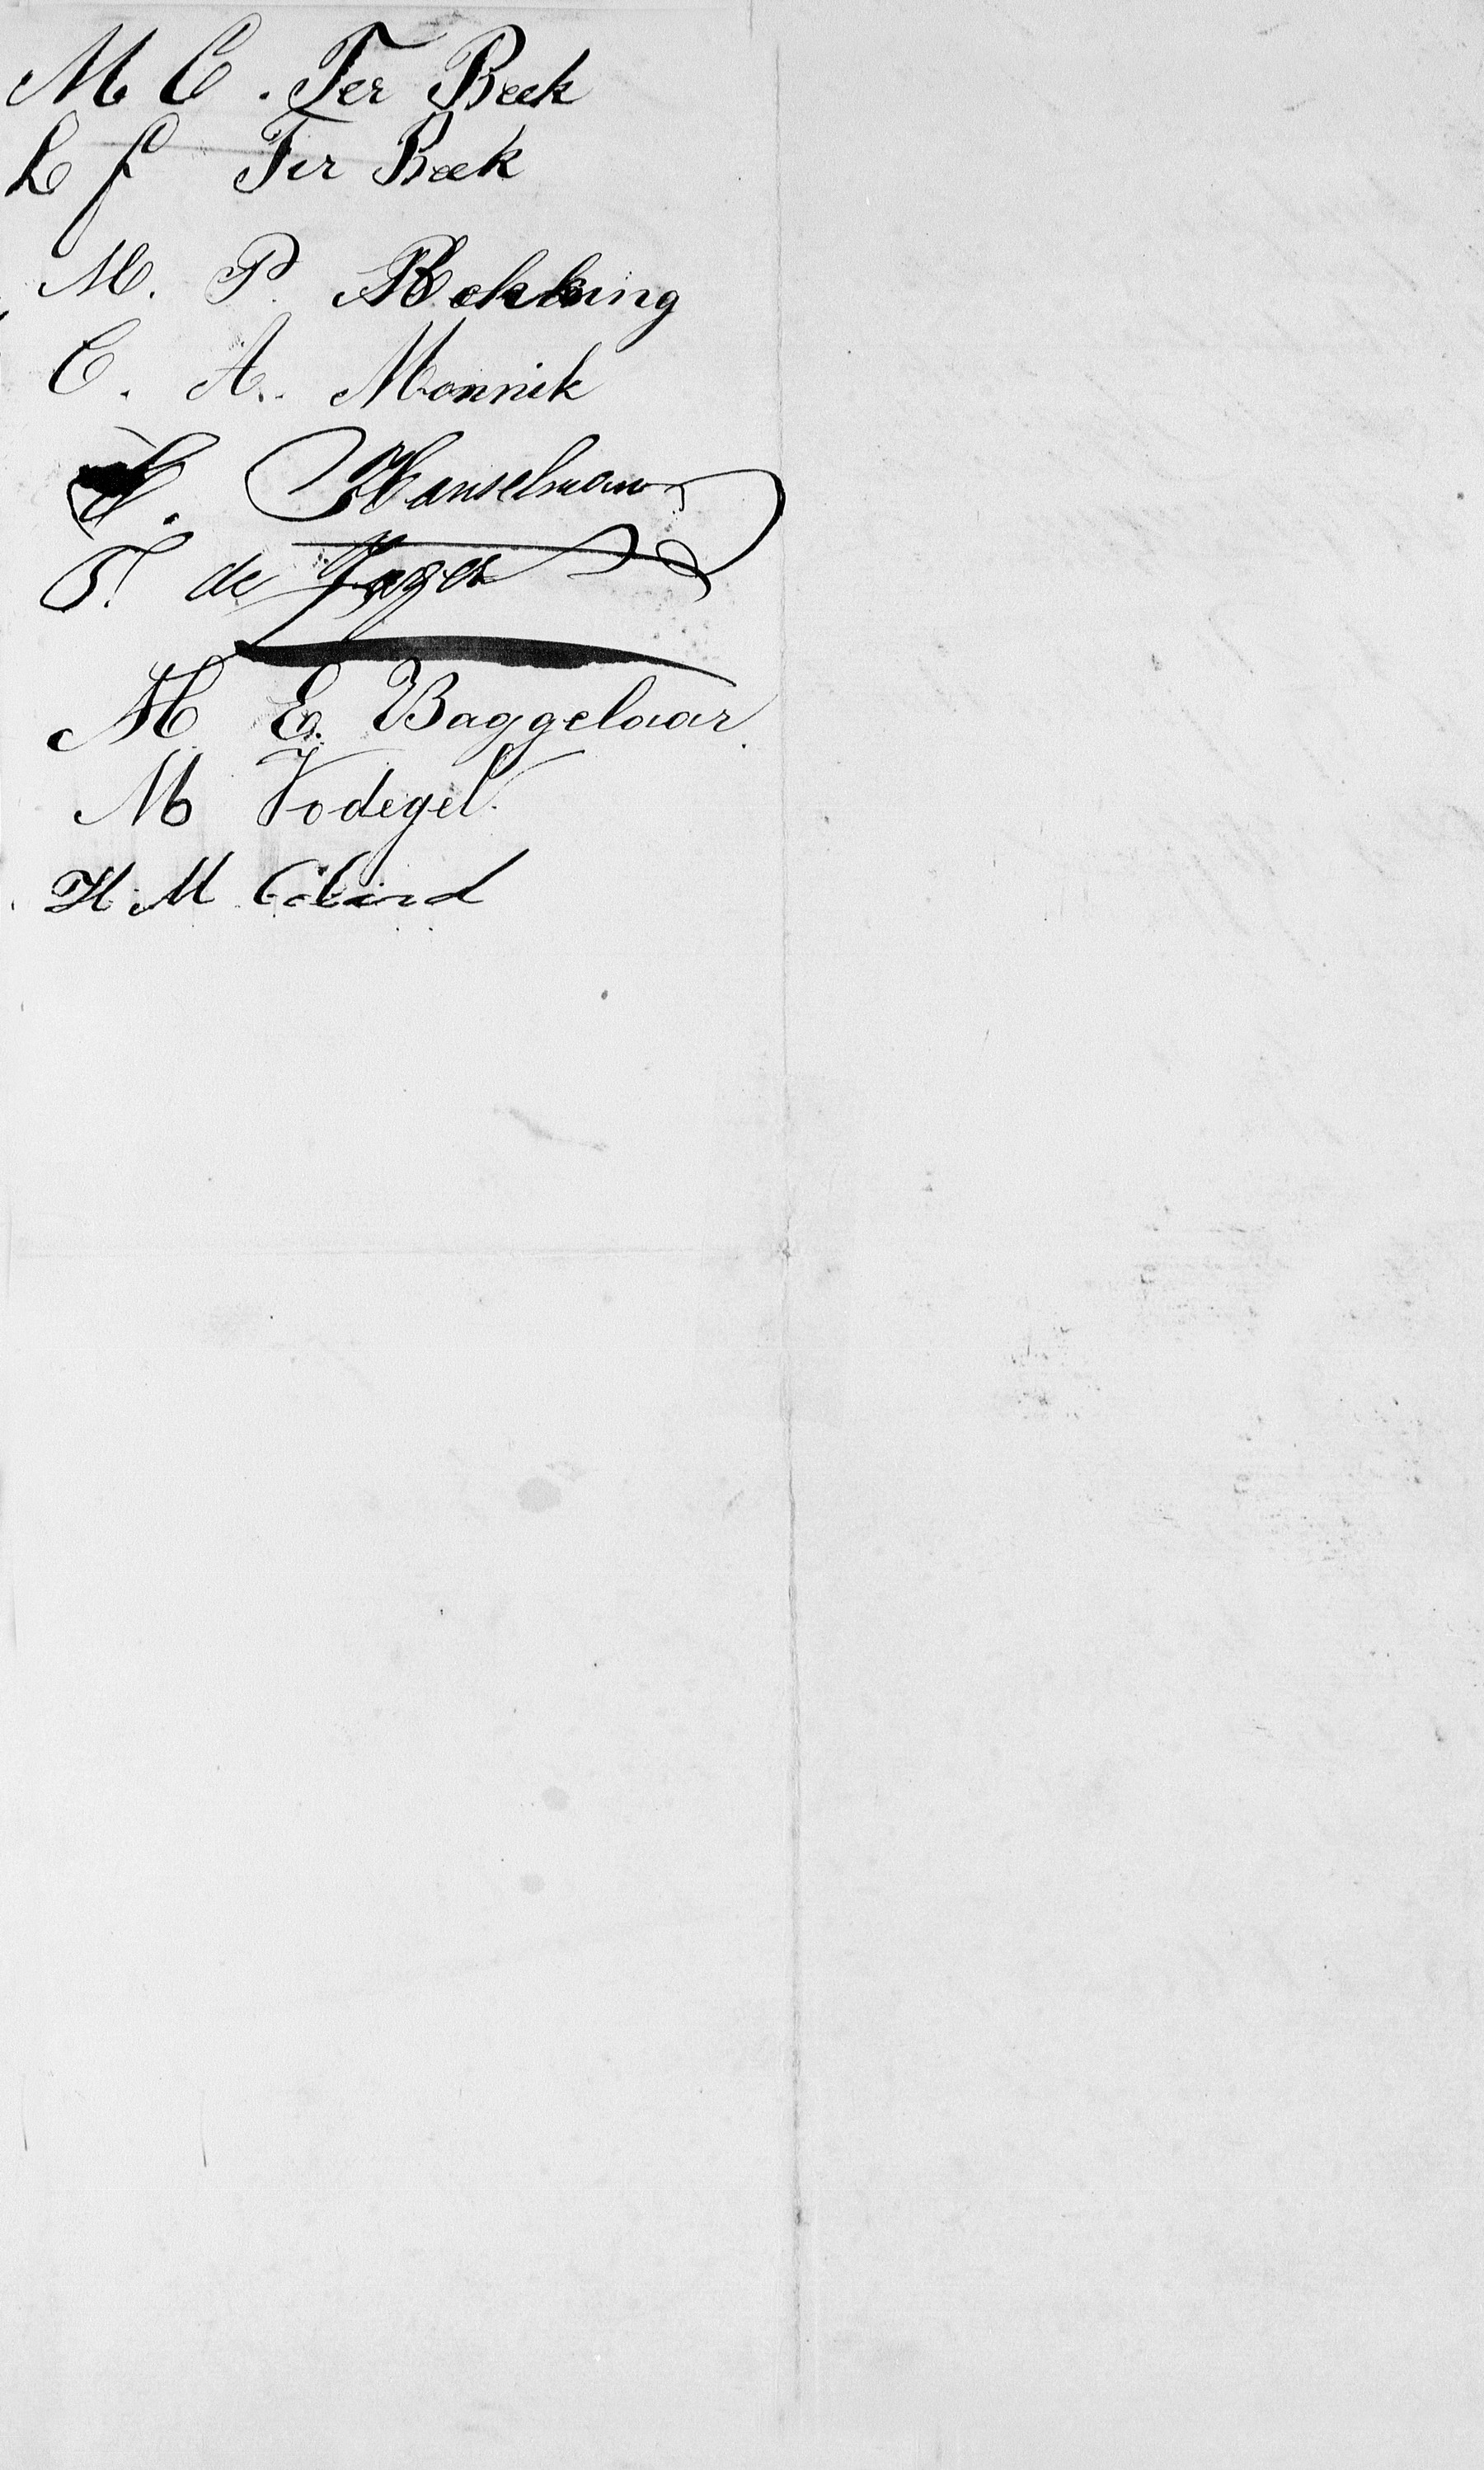 M C. Ter Beek
L J Ter Beek
M. P. Rekking
C. A. Monnik
Hanselman
T. de Jager
M E. Baggelaar
M Vodegel
H M